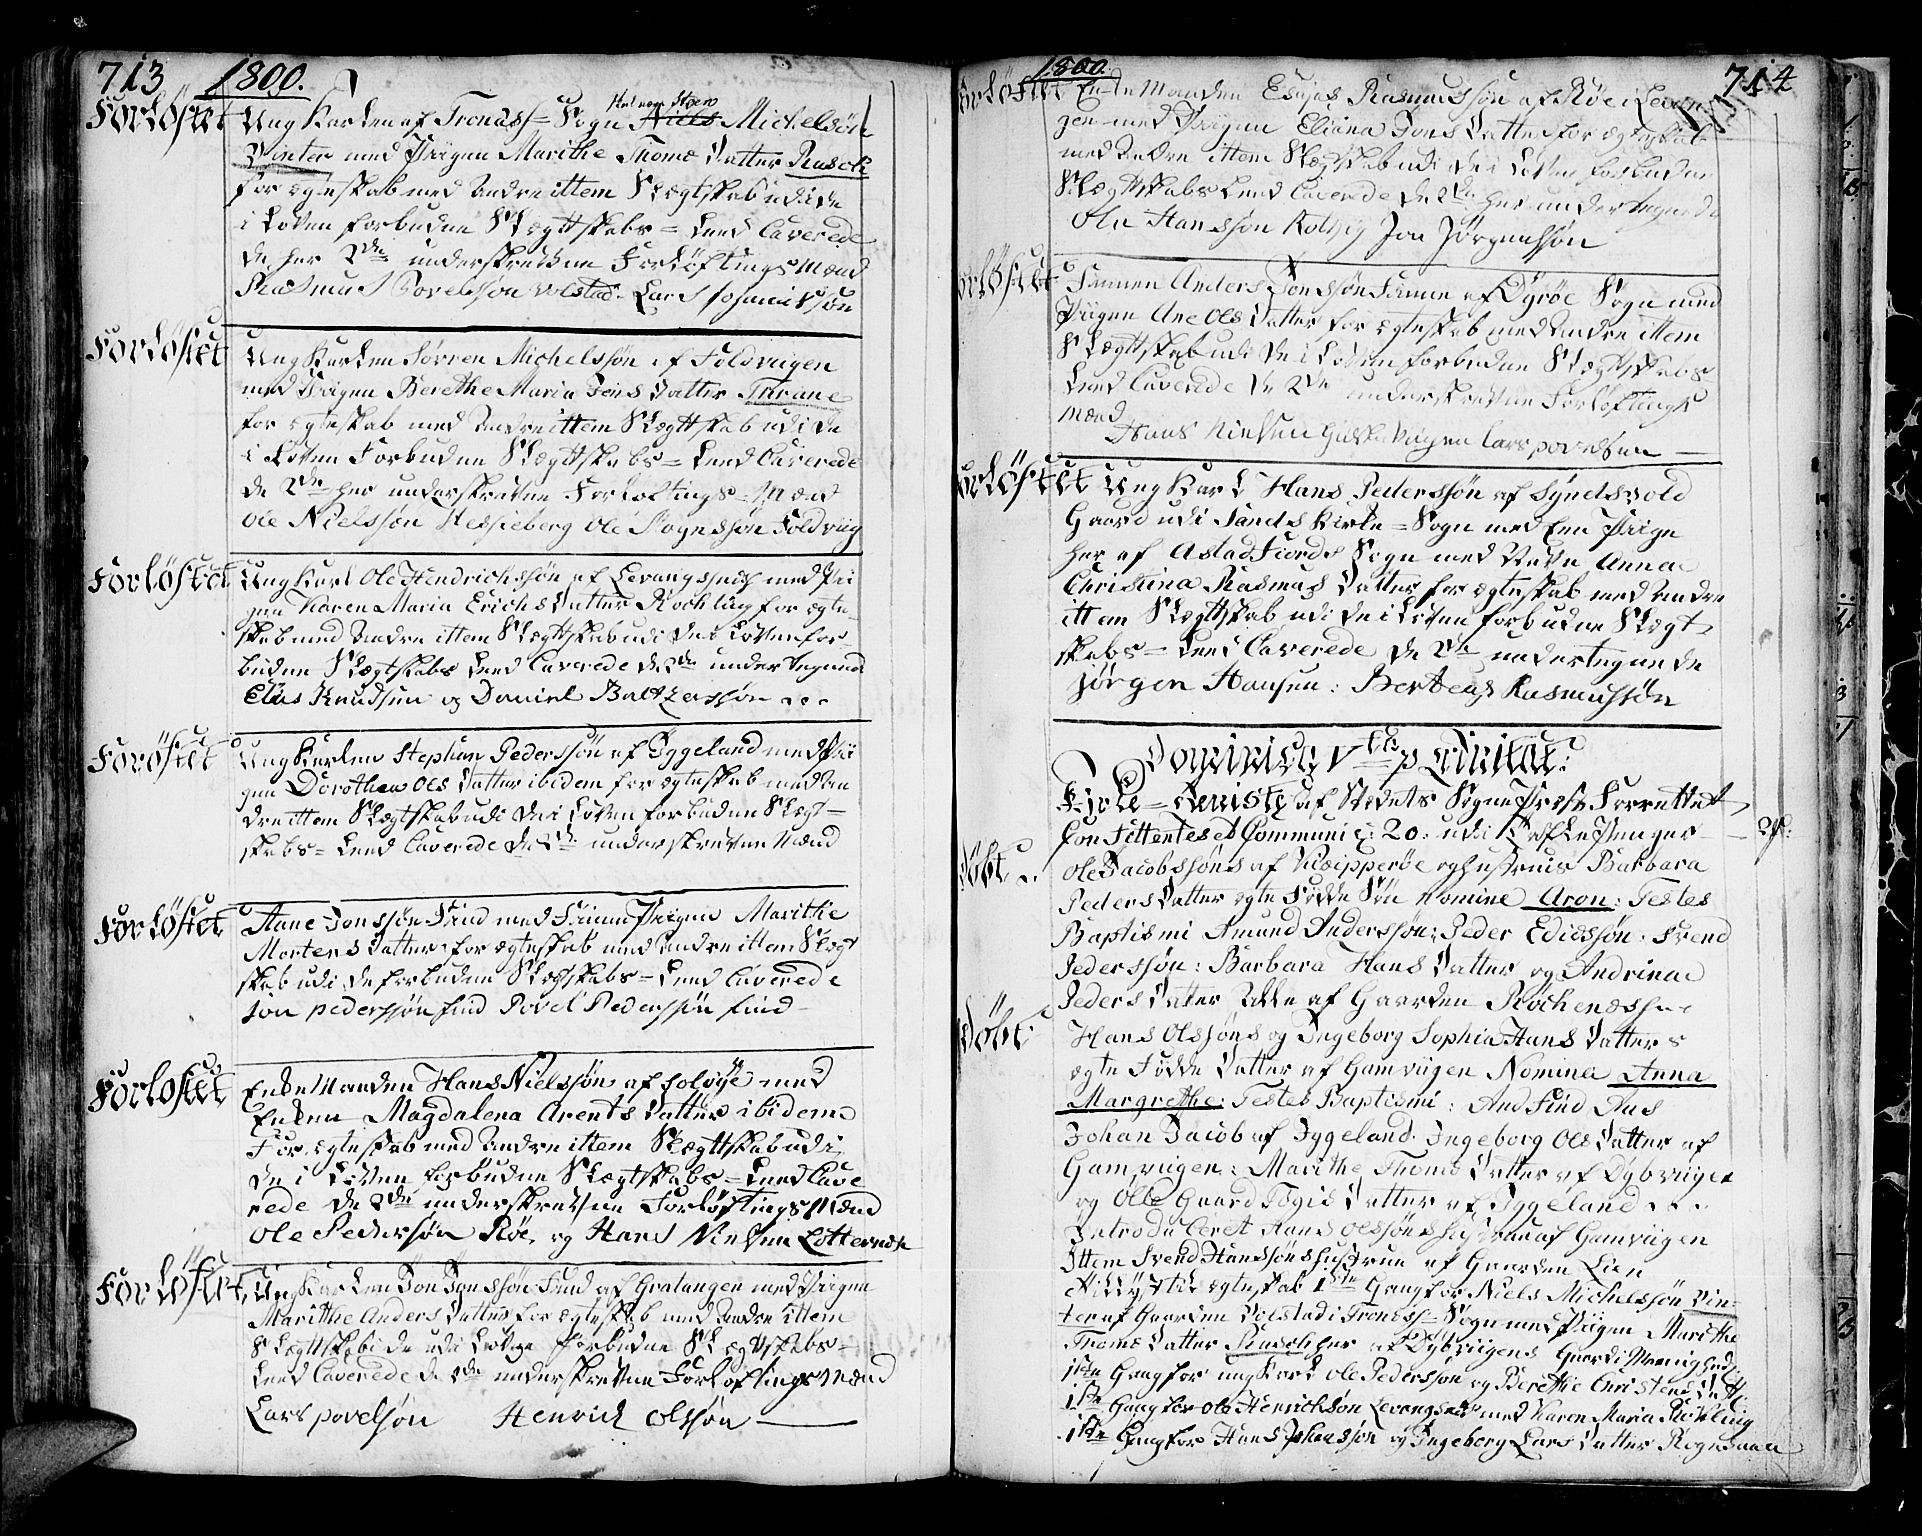 713 1800.
Forløftet Ung Karlen af Tronæss = Sogn Niels Michelsøn
Winter med Piigen Marithe Thomæ Datter Rusch
for ægteskab med andre ittem Slægtskab udi de
i Loven forbudne Slægtskabs = Leed Caverede
de her 2de underskrevne Forløftings Mænd
Rasmus Povelsøn volstad. Lars
Forløftet Ung Karlen Sørren Michelssøn af Foldviigen
med Piigen Berethe Maria Jens Datter Thrane
for ægteskab med andre ittem Slægtskab udi de
i Loven Forbudne Slægtskabs = Leed Caverede
de 2de her underskrevne Forløftings = Mænd
Ole Nielssøn Hessieberg Ole Aognessøn Foldviig
Forløftet Ung Karl Ole Hendrichssøn af Levangsnæs med Pii
gen Karen Maria Erichs Datter Røchling for ægte
skab med andre ittem Slægtskab udi de i Loven for
budne Slægtskabs Leed Caverede de 2de undertegned
Elias Knudsen og Daniel Baltzersøn
Forløftet Ung Karlen Stephan Pederssøn af Iggeland med Pii
gen Dorothea Ols Datter ibidem for ægteskab med an
dre ittem Slægtskab udi de i Loven forbudne Slægt =
skabs = Leed Caverede de 2de underskrevne Mænd
Forløftet Aane Jonssøn Find med Finne Piigen Marithe
Mortens Datter for ægteskab med andre ittem Slægt
skab udi de forbudne Slægtskabs = Leed Caverede
jon pederssøn find Povel Pederssøn find
Forløftet Enke Manden Hans Nielssøn af solvye med
Enken Magdalena Arents Datter ibidem
For ægteskab med andre ittem Slægtskab udi
de i Loven forbudne Slægtskabs = Leed Cave
rede de 2de underskrevne Forløftings Mænd
Ole Pedersøn Røe, og Hans Nielsen Lotternæs
Forløftet Ung Karlen Jon Jonssøn Find af Gratangen med Piigen
Marithe Anders Datter for ægteskab med andre ittem
Slægtskab i de udi Loven forbudne Slægtskabs =
Leed Caverede de 2de underskrevne Forløftings Mænd
Lars povelsøn Henrick olsøn
1800. 714
Forløftet Enke Manden Esajas Rasmussøn af Røe i Levan
gen med Piigen Eliana Jons Datter for ægteskab
med andre ittem Slægtskab udi de i Loven forbudne
Slægtskabs Leed Caverede de 2de her undertegnede
Ole Hanssøn Rotvig Jon Jørgenssøn
Forløftet Finnen Anders Jonssøn Finne af Dyrøe Sogn med
Piigen Ane Ols Datter for ægteskab med andre ittem
Slægtskab udi de i Loven forbudne Slægtskabs
Leed Caverede de 2de underskrevne Forløftings
Mænd
Hans Nielsen Lars povelsen
Forløftet Ung Karl Hans Pederssøn af Syndsvold
Gaard udi Sands Kirke = Sogn med een Piige
her af Astad Fiords Sogn med Navn Anna
Christina Rasmus Datter for ægteskab med andre
ittem Slægtskab udi de i Loven forbudne Slægt
skabs = Leed Caverede de 2de undertegnede
jørgen Hansen : Berteus Rasmussøn
Dominica Vta p Trinitat:
Kirke = Tienniste af Stedets Sogne Præst Forrettet
Confitentes et Communic: 20. udi Tafle Penger
Døbt Ole Jacobssøns af Klæipperøe og hustrues Barbara
Peders Datter ægte Fødde Søn nomine Aron: Testes
Baptismi Amund Anderssøn: Peder Edissøn. Svend
Pederssøn: Barbara Hans Datter og Andrina
Peders Datter alle af Gaarden Røchenæss
Døbt Hans Olssøns og Ingeborg Sophia Hans Datters
ægte Fødde Datter af Gamviigen Nomine Anna
Margrethe: Testes Baptismi: And Find Aas
Johan Jacob af Iggeland. Ingeborg Ols Datter af
Gamviigen: Marithe Thoms Datter af Dybviigen
og Olle Gaard Tøgis Datter af Iggeland
Introduceret Hans Olssøns Hustrue af Gamviigen
Ittem Svend Hanssøns Hustrue af Gaarden Lien
Tillyst til ægteskab 1ste Gang for Niels Michelssøn Vin-
ter af Gaarden Volstad i Tronæss = Sogn med Piigen Marithe
Thoms Datter Rusch her af Dybviigens Gaard i Menighed.
1ste Gang for ung Karl Ole Pederssøn og Berethe Christens Datt:
1ste Gang for Ole Henrichsøn Levangsnæs med Karen Maria Røkling
1ste Gang for Hans Johanssøn og Ingeborg Lars Datter Rognsaae